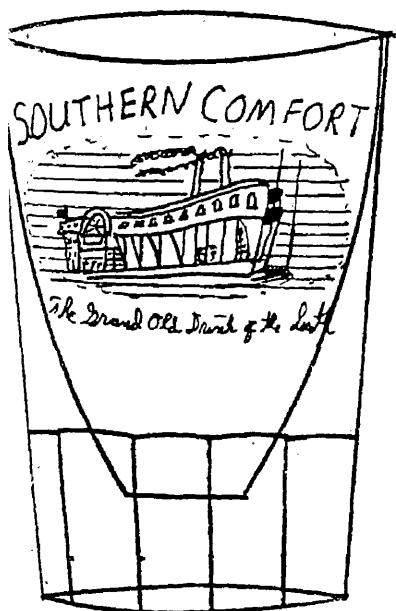 SOUTHERN COMFORT
The Grand Old Drink of the South